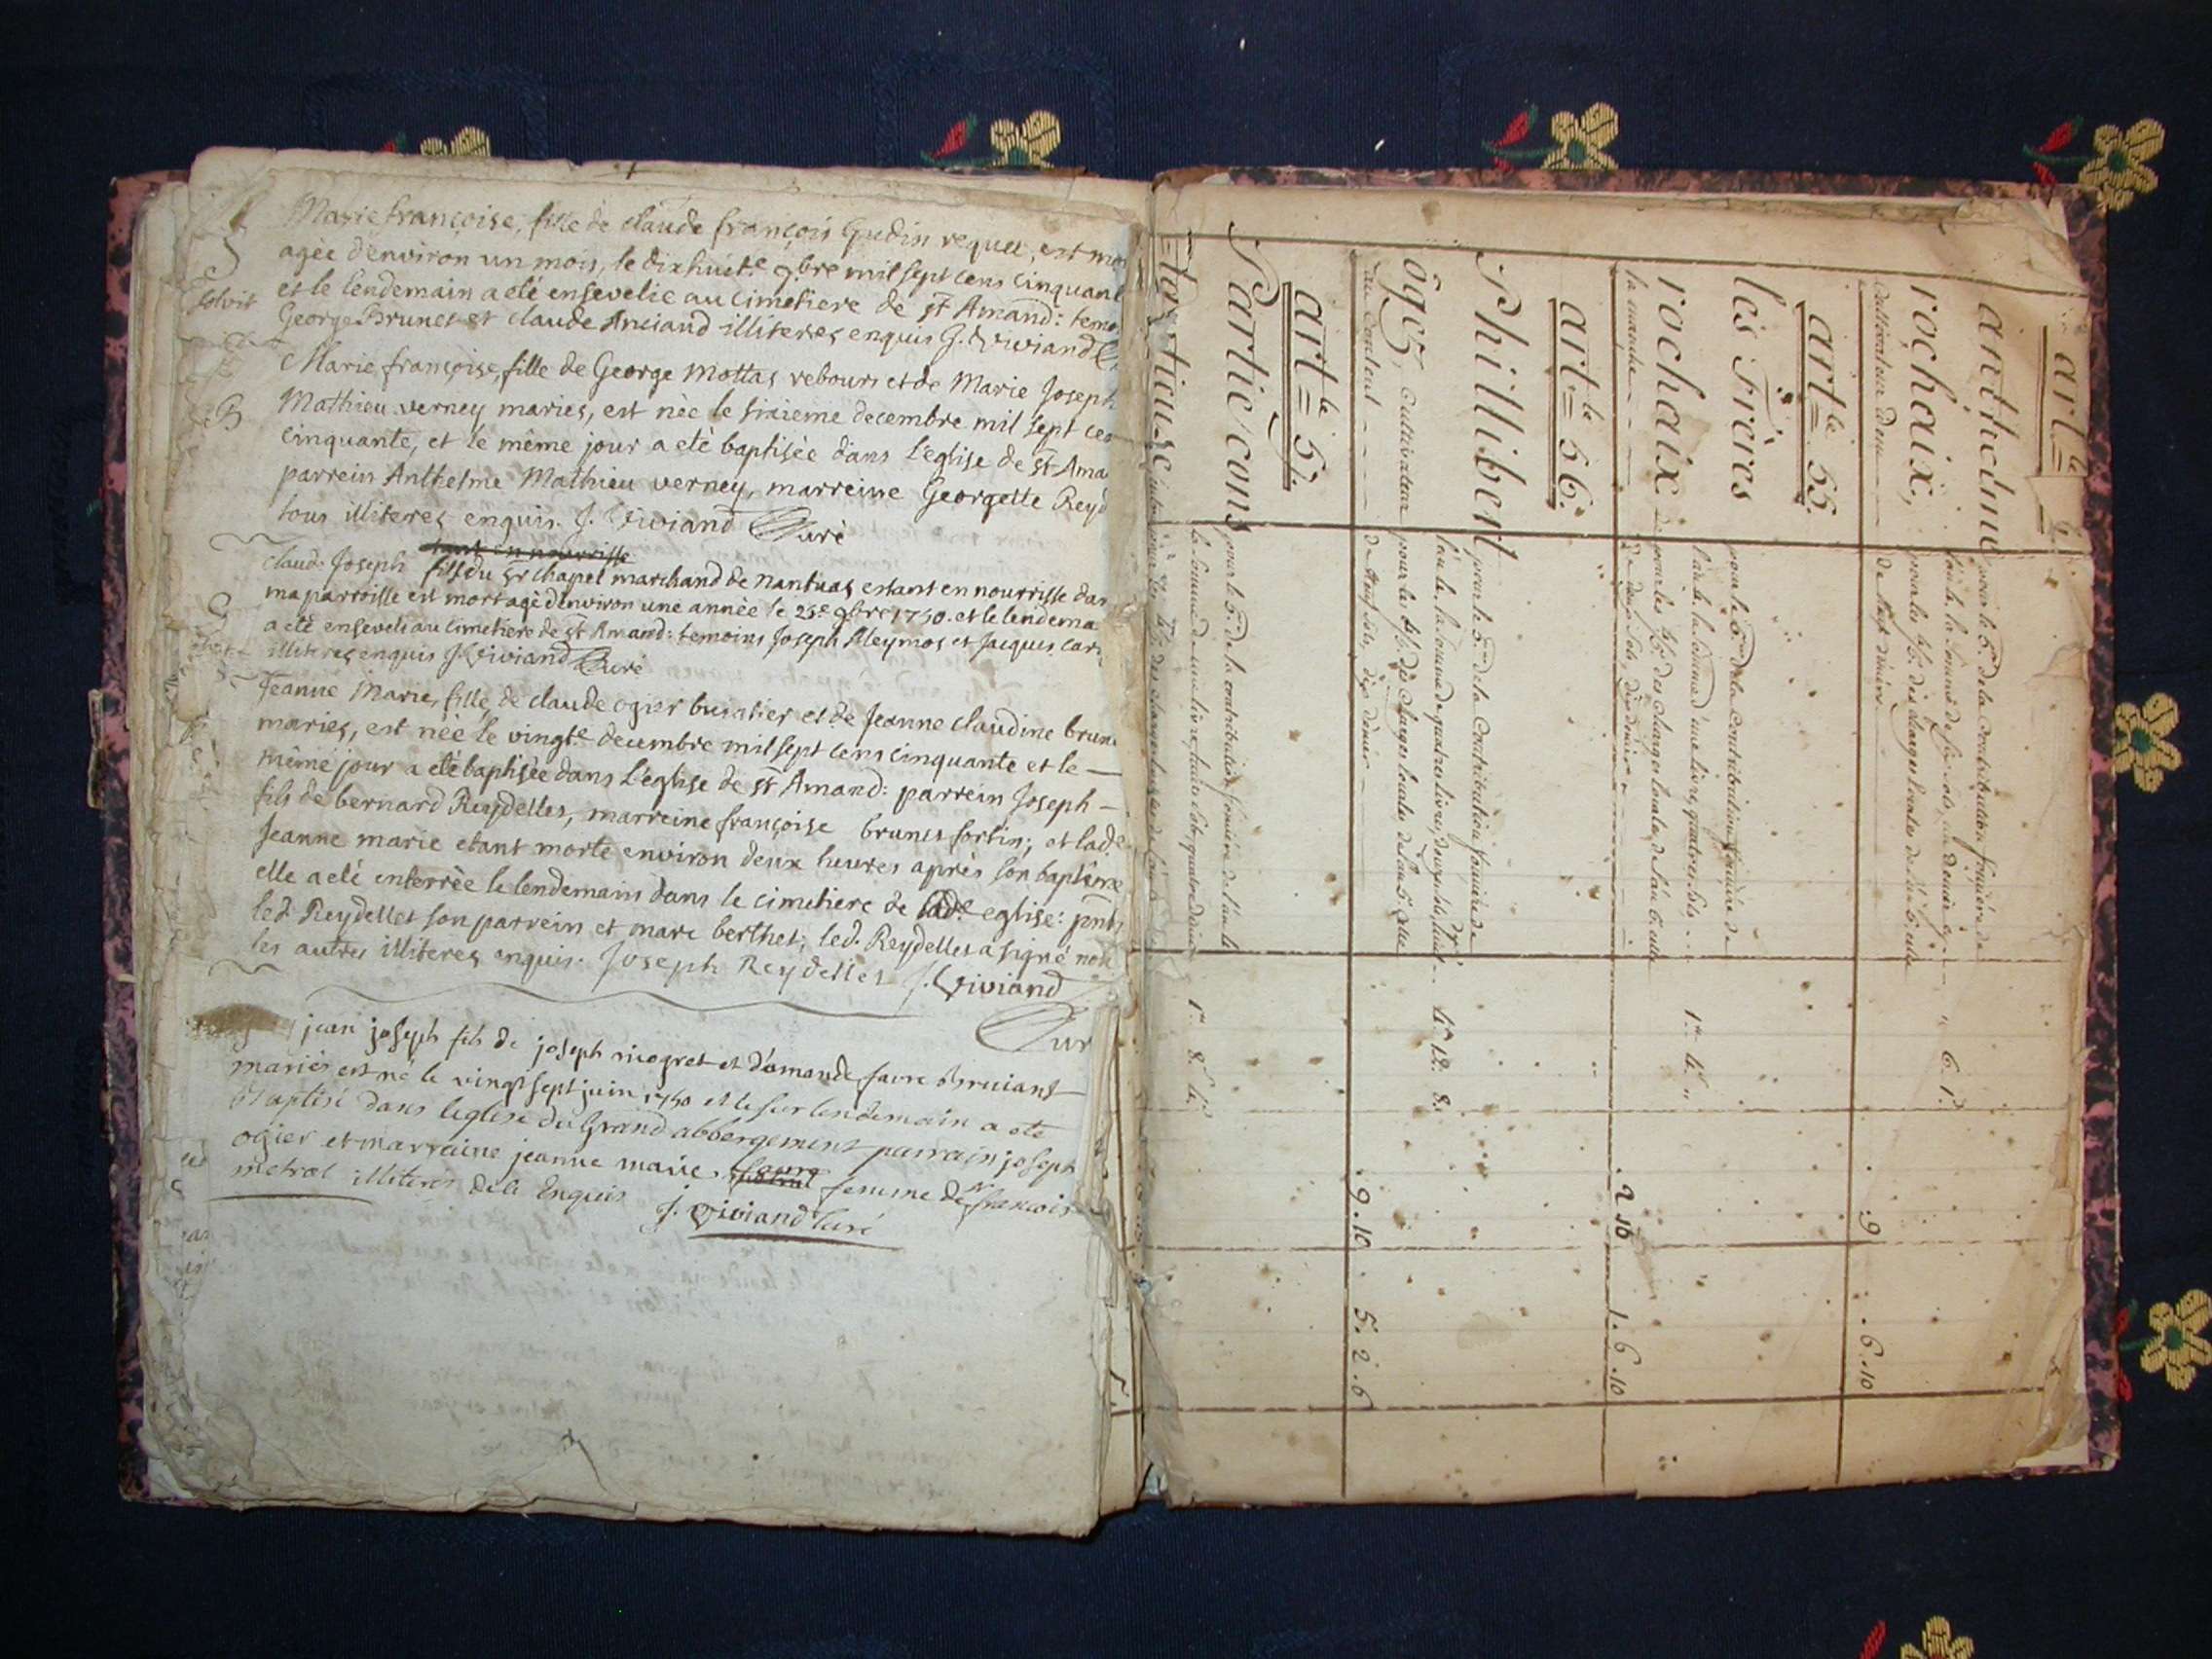 Marie françoise, fille de claude françois Gudin requet, est mor
agée d'environ un mois, le dixhuit.e 9bre mil sept cens cinquant
et le lendemain a eté ensevelie au cimetiere de st Amand: temo
solvit
George Brunet et claude Anciand illiteres enquis J. Viviand
Marie françoise, fille de George Mottas rebours et de Marie Joseph
B
Mathieu verney mariés, est née le sixieme decembre mil sept cen
cinquante, et le même jour a eté baptisée dans l'eglise de st Ama
parrein Anthelme Mathieu verney, marreine Georgette Reyd
tous illiteres enquis. J. Viviand Curé
Claude Joseph fils du sr chapel marchand de Nantuas estant en nourrisse dan
ma parroisse est mort agé d'environ une année le 25.e 9bre 1750. et le lendema
a eté enseveli au cimetiere de st Amand: temoins Joseph Aleymos et Jacques car
illiteres enquis J. Viviand Curé
Jeanne Marie, fille de claude ogier buvatier et de Jeanne claudine brune
mariés, est née le vingt.e decembre mil sept cens cinquante et le
même jour a eté baptisée dans l'eglise de st Amand: parrein Joseph
fils de bernard Reydellet, marreine françoise brunet fortin; et lad.e
Jeanne marie etant morte environ deux heures après son baptême
elle a eté enterrée le lendemain dans le cimetiere de lad.e eglise: pnts
led. Reydellet son parrein et marc berthet; led. Reydellet a signé non
les autres illiteres enquis. Joseph Reydellet J. Viviand
Cur
jean joseph fils de joseph nicogret et d'emande favre Bruiant
mariés est né le vingt sept juin 1750 et le sur lendemain a eté
Baptisé dans leglise du Grand abbergement parrain joseph
ogier et marraine jeanne marie femme de françois
metral illiteres de ce Enquis
J. Viviand Curé
art.le
anthelme
rochaix,
cultivateur
pour le 5.me de la contribution foncière de
6. 1.d
de Neuf deniers
.9
.6.10
art.le 55.
les Frères
rochaix
la manche
pour le 5.me de la contribution foncière de
l'an 6. la somme d'une livre, quatre sols
1.# 4.s
pour les des charges locales de l'an 6. cela
de deux sols, dix deniers
.2 10
1.6.10
art.le 56.
Phillibert
oger, cultivateur
au Condeul
pour le 5.me de la contribution foncière de
l'an 6. la somme de quatre livres, douze sols, huit
4.# 12. 8.
pour les des charges locales de l'an 6. cela
de Neuf sols, dix deniers
.9.10
5.2.6
art.le 57.
Partie cons
pour le 5.me de la contribution foncière de l'an 6
la somme de une livre, huit sols quatre deniers
1.# 8.s 4.d